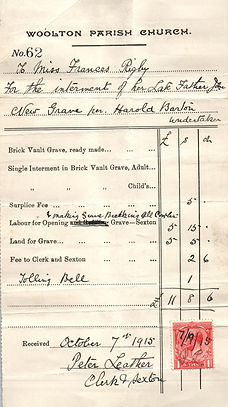 WOOLTON PARISH CHURCH.
No. 62
To Miss Frances Rigby
For the interment of her Late Father in
New Grave per. Harold Barton
undertaker
£ s d
Brick Vault Grave, ready made...
Single Interment in Brick Vault Grave, Adult...
" " " Child's...
Surplice Fee ... 5
& making
Labour for Opening Grave—Sexton 5 15 -
Land for Grave 5 5 -
Fee to Clerk and Sexton 2 6
Tolling Bell 1
11 8 6
Received October 7th 1915
7/9/15
Peter Leather
Clerk & Sexton